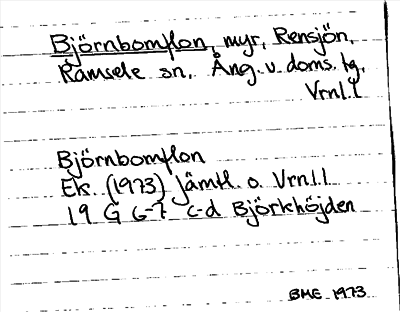 Björnbomflon, myr, Rensjön,
Ramsele sn, Ång. v. doms. tg,
Vrnl. l
Björnbomflon
Ek. (1973) Jämtl. o. Vrnl. l
19 G 6-7 c-d Björkhöjden
BME 1973